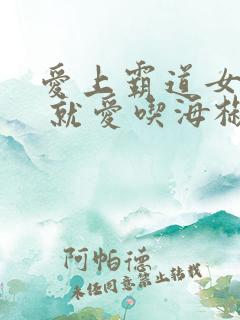 愛上霸道女
就愛喫海
阿帕德
未经同意禁止转载